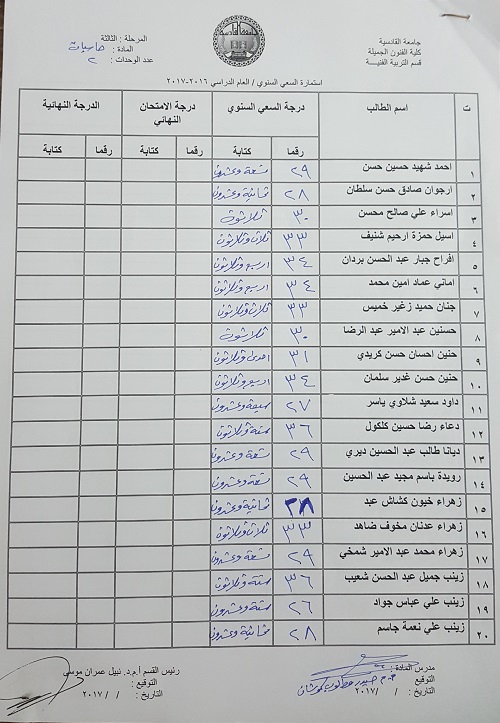 جامعة القادسية
كلية الفنون الجميلة
قسم التربية الفنية
المرحلة : الثالثة
المادة : حاسبات
عدد الوحدات : ٢
استمارة السعي السنوي / العام الدراسي ٢٠١٦-٢٠١٧
ت اسم الطالب درجة السعي السنوي درجة الامتحان النهائي الدرجة النهائية
رقما كتابة رقما كتابة رقما كتابة
١ احمد شهيد حسين حسن ٢٩ تسعة وعشرون
٢ ارجوان صادق حسن سلطان ٢٨ ثمانية وعشرون
٣ اسراء علي صالح محسن ٣٠ ثلاثون
٤ اسيل حمزة ارحيم شنيف ٣٣ ثلاث وثلاثون
٥ افراح جبار عبد الحسن بردان ٣٤ اربع وثلاثون
٦ اماني عماد امين محمد ٣٤ اربع وثلاثون
٧ جنان حميد زغير خميس ٣٣ ثلاث وثلاثون
٨ حسنين عبد الامير عبد الرضا ٣٠ ثلاثون
٩ حنين احسان حسن كريدي ٣١ احدى وثلاثون
١٠ حنين حسن غدير سلمان ٣٤ اربع وثلاثون
١١ داود سعيد شلاوي ياسر ٢٧ سبعة وعشرون
١٢ دعاء رضا حسين كلكول ٣٦ ستة وثلاثون
١٣ ديانا طالب عبد الحسين ديري ٢٩ تسعة وعشرون
١٤ رويدة باسم مجيد عبد الحسين ٢٩ تسعة وعشرون
١٥ زهراء خيون كشاش عبد ٢٨ ثمانية وعشرون
١٦ زهراء عدنان مخوف ضاهد ٣٣ ثلاث وثلاثون
١٧ زهراء محمد عبد الامير شمخي ٢٩ تسعة وعشرون
١٨ زينب جميل عبد الحسن شعيب ٣٦ ستة وثلاثون
١٩ زينب علي عباس جواد ٢٦ ستة وعشرون
٢٠ زينب علي نعمة جاسم ٢٨ ثمانية وعشرون
مدرس المادة : م.م حيدر
التوقيع :
التاريخ : / / ٢٠١٧
رئيس القسم أ.م.د. نبيل عمران موسى
التوقيع :
التاريخ : / / ٢٠١٧